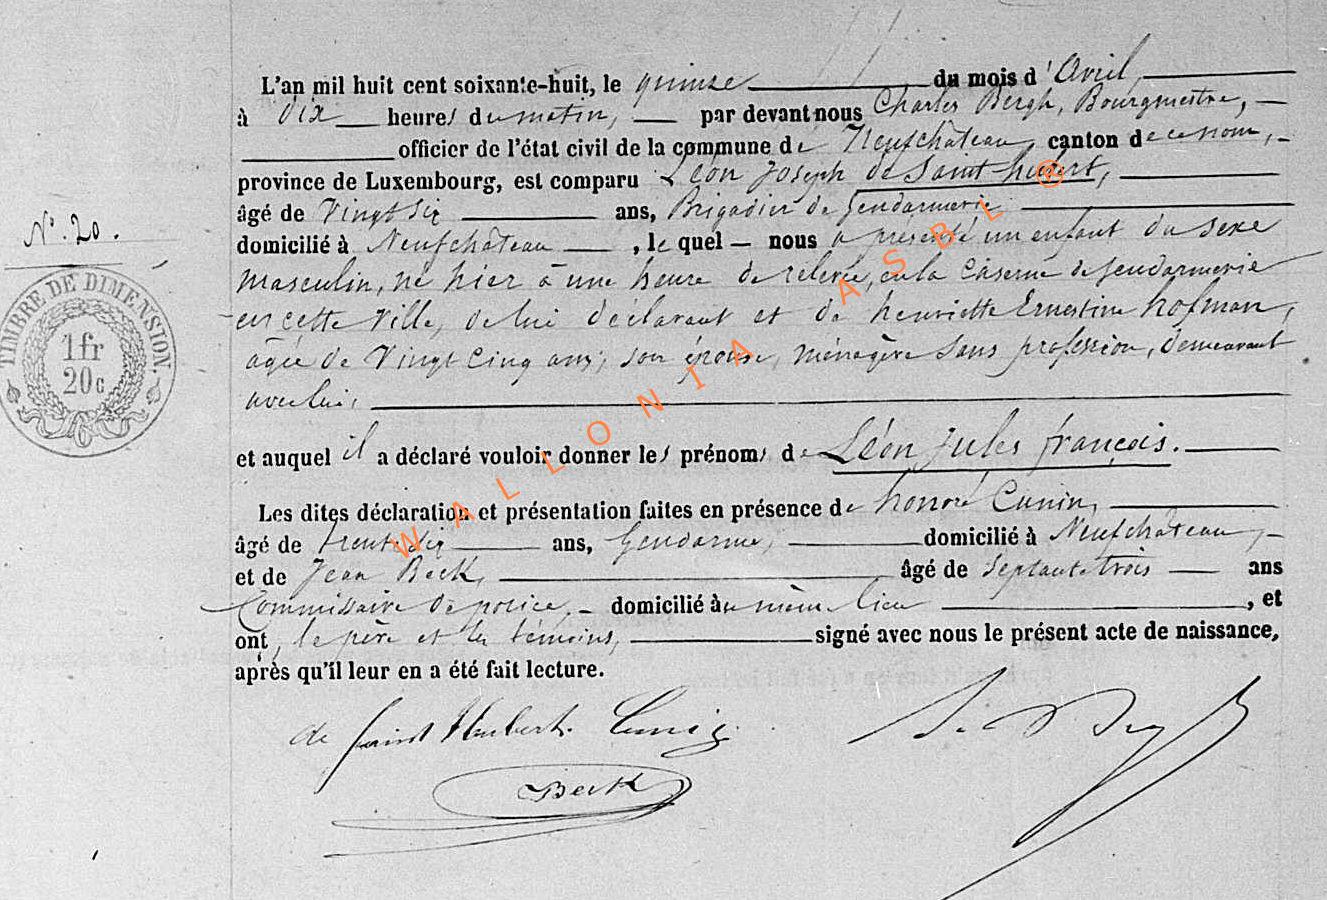 L'an mil huit cent soixante-huit, le quinze du mois d'Avril,
à Dix heures du matin, par devant nous Charles Bergh, Bourgmestre,
officier de l'état civil de la commune de Neufchâteau, canton de ce nom,
province de Luxembourg, est comparu Léon Joseph de Saint hubert,
âgé de Vingt Six ans, Brigadier de Gendarmerie
N°. 20.
domicilié à Neufchâteau, le quel nous a présenté un enfant du sexe
masculin, né hier à une heure de relevée, en la Caserne de Gendarmerie
en cette Ville, de lui déclarant et de henriette Ernestine hofman,
âgée de Vingt Cinq ans, son épouse, ménagère sans profession, demeurant
avec lui,
TIMBRE DE DIMENSION.
1fr
20c
et auquel il a déclaré vouloir donner les prénoms de Léon Jules françois.
Les dites déclaration et présentation faites en présence de honoré Cunin,
âgé de trente six ans, Gendarme, domicilié à Neufchâteau,
et de Jean Beck, âgé de Septante trois ans
Commissaire de police, domicilié au même lieu, et
ont, le père et les témoins, signé avec nous le présent acte de naissance,
après qu'il leur en a été fait lecture.
de Saint Hubert. 
Beck
WALLONIA ASBL ®